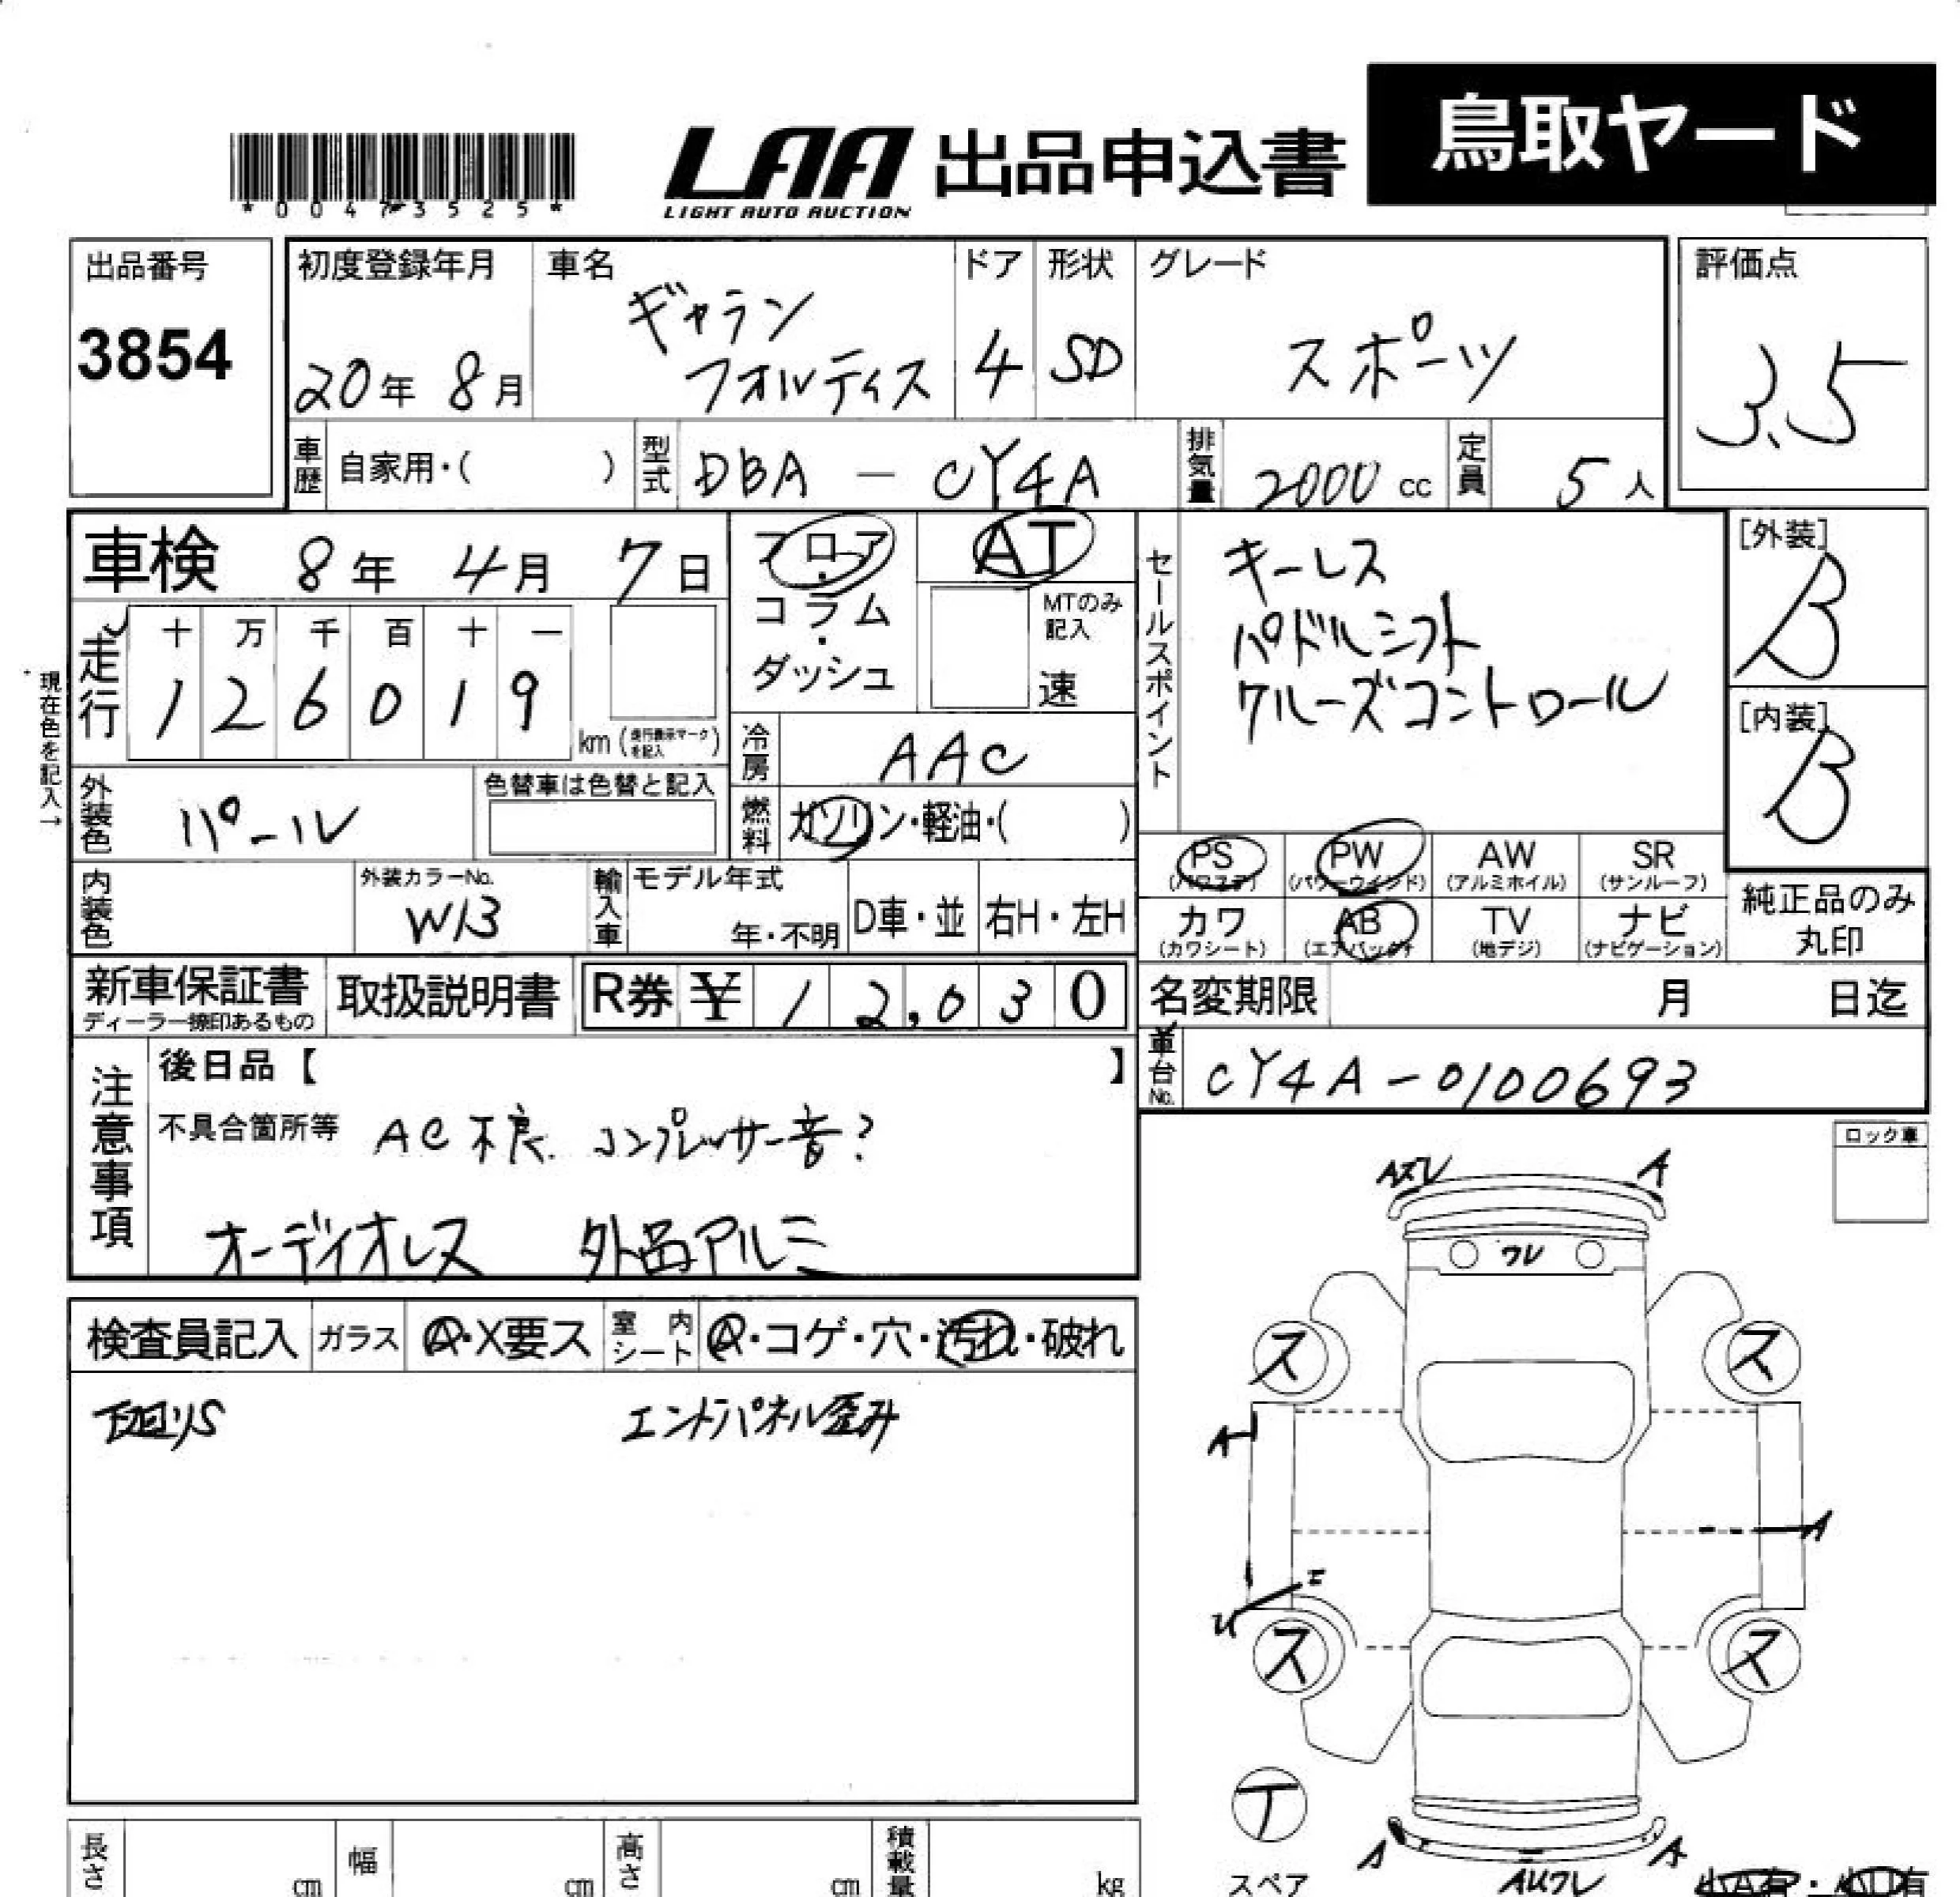 *00473525*
LAA 出品申込書 鳥取ヤード
LIGHT AUTO AUCTION
出品番号 3854
初度登録年月 20年 8月
車名 ギャラン
フォルティス
ドア 4
形状 SD
グレード スポーツ
評価点 3.5
車歴 自家用・( )
型式 DBA - CY4A
排気量 2000 cc
定員 5人
車検 8年 4月 7日
フロア・コラム・ダッシュ
AT
MTのみ記入
速
セールスポイント
キーレス
パドルシフト
クルーズコントロール
[外装] B
[内装] B
走行
十 万 千 百 十 一
1 2 6 0 1 9
km (走行表示マークを記入)
現在色を記入→
冷房 AAC
外装色 パール
色替車は色替と記入
燃料 ガソリン・軽油・( )
内装色
外装カラーNo. W13
輸入車 モデル年式
年・不明
D車・並
右H・左H
PS (パワステ)
PW (パワーウインド)
AW (アルミホイル)
SR (サンルーフ)
カワ (カワシート)
AB (エアバック)
TV (地デジ)
ナビ (ナビゲーション)
純正品のみ
丸印
新車保証書
ディーラー捺印あるもの
取扱説明書
R券 ¥ 12,030
名変期限 月 日迄
車台No. CY4A-0100693
注意事項
後日品【 】
不具合箇所等 AC不良 コンプレッサー音?
オーディオレス 外品アルミ
ロック車
検査員記入 ガラス A・X要ス 室内シート A・コゲ・穴・汚れ・破れ
下廻りS エンドパネル歪み
A
ワレ
ス ス
A
A
ス ス
T
スペア
A A
長さ cm 幅 cm 高さ cm 積載量 kg